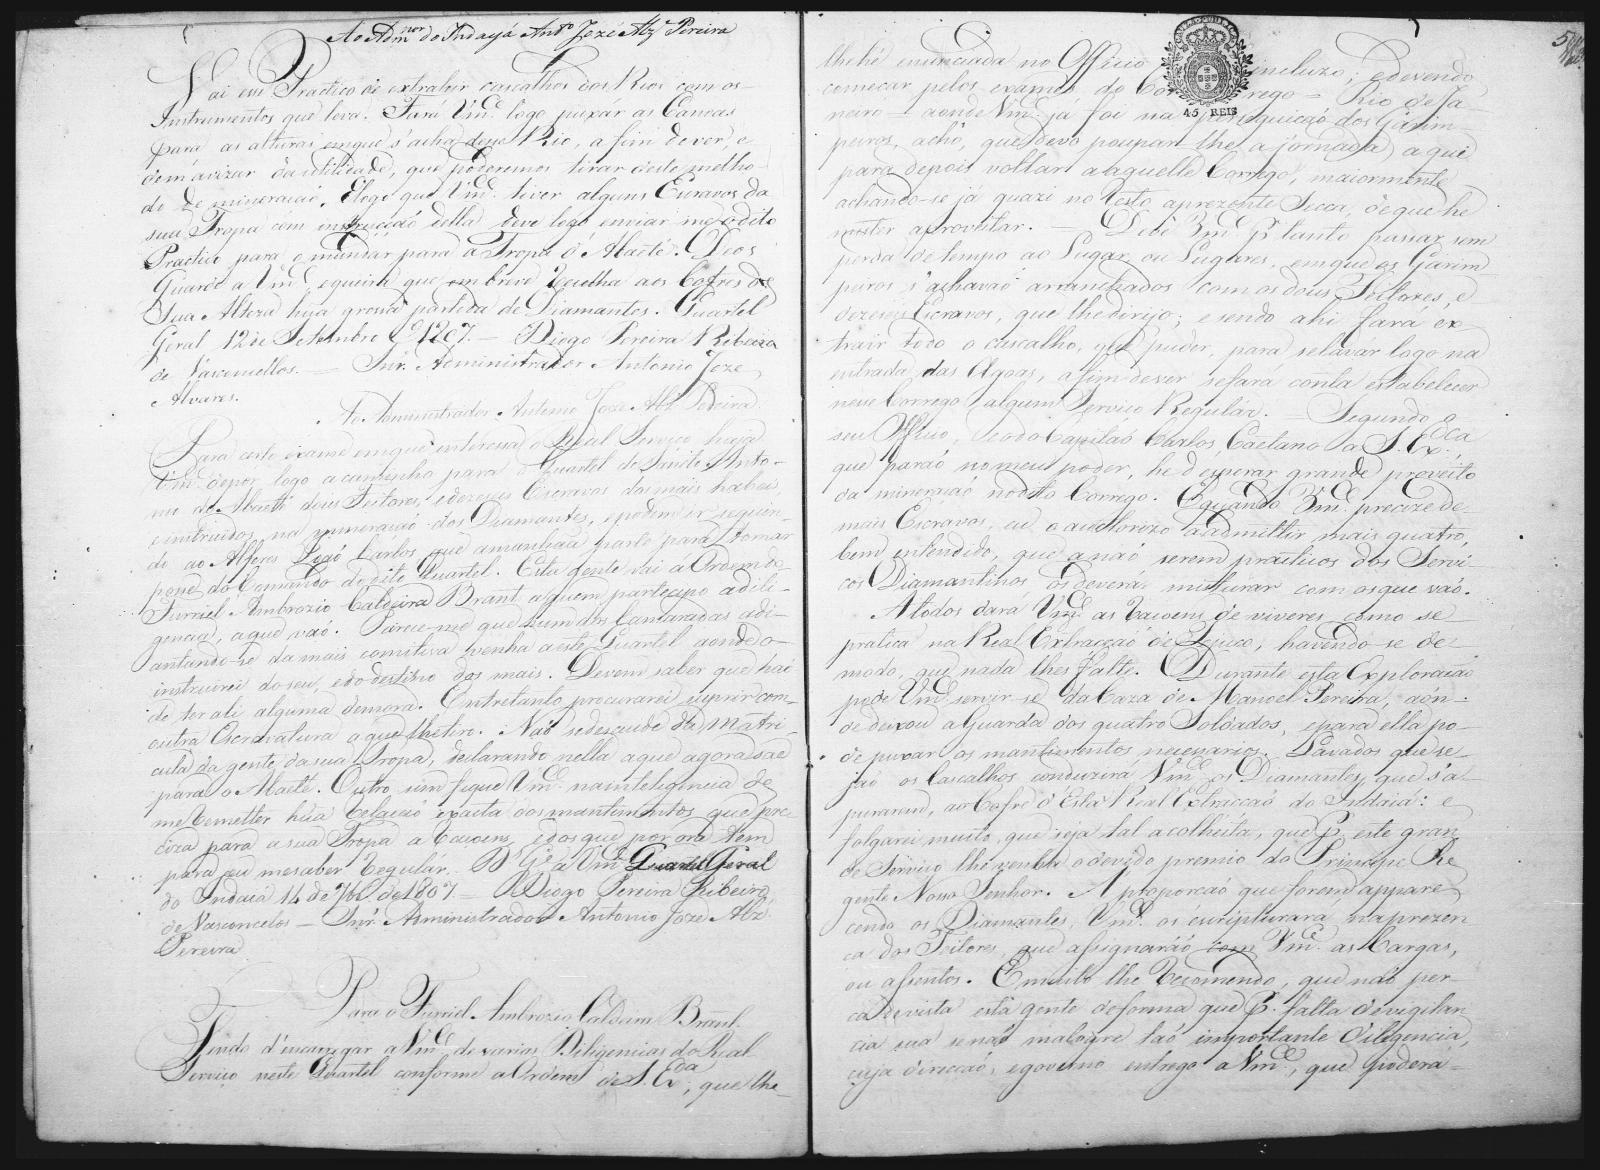 Ao Admnor do Indayá Anto Jozé Alz Pereira
Vai esse Practico de extrahir cascalhos dos Rios com os
Instrumentos que leva. Fará Vmce logo puxár as Canoas
para as alturas em que s'acha desse Rio, a fim de ver, e
dem avizar da utilidade, que poderemos tirar deste metho-
do de mineração. E logo que Vmce tiver alguns Escravos da
sua Tropa com instrucçaõ della deve logo enviar me o dito
Practico para o mandar para a Tropa d'Abaeté. Deos
Guarde a Vmce, e queira que em breve recolha aos Cofres de
Sua Alteza huã grossa partida de Diamantes. Quartel
Geral 12 de Setembro de 1807. — Diogo Pereira Ribeiro
de Vasconcellos. — Snr. Administrador Antonio Joze
Alvares.
Ao Administrador Antonio Joze Alz Pereira
Para certo exame em que interessa o Real Serviço haja
Vmce de por logo a caminho para o Quartel de Santo Anto-
nio do Abaeté dous Feitores, e dezeseis Escravos dos mais habeis,
e instruidos na mineraçaõ dos Diamantes, e podem ir seguin-
do ao Alferes Jozé Carlos que amanhaã parte para tomar
posse do Comando do dito Quartel. Esta gente vai á Ordem do
Furriel Ambrozio Caldeira Brant a quem participo a dili-
gencia, a que vaõ. Parece-me que hum dos Camaradas adi-
antando-se da mais comitiva venha a este Quartel aonde o
instruirei do seu, e do destino dos mais. Devem saber que haõ
de ter ali alguma demora. Entretanto procurarei suprir com
outra Escravatura a que lhe tiro. Naõ se descuide da Matri-
cula da gente da sua Tropa, declarando nella a que agora sae
para o Abaeté. Outro sim fique Vmce na inteligencia de
me remetter hũa relaçaõ exacta dos mantimentos que pre-
ciza para a sua Tropa a raçoens, e dos que por ora tem
para eu me saber regular. Ds Ge a Vmce Quartel Geral
do Indaia 14 de 7bro de 1807 — Diogo Pereira Ribeiro
de Vasconcelos — Snr. Administrador Antonio Joze Alz
Pereira
Para o Furriel Ambrozio Caldeira Brant.
Tendo d'encarregar a Vmce de varias Diligencias do Real
Serviço neste Quartel conforme a Ordem de S. Exda, que lhe
lhe hé enunciada no Officio incluzo; e devendo
começar pelos exames do Corrego — Rio de Ja-
neiro — aonde Vmce já foi na perseguiçaõ dos Garim-
peiros, acho, que devo poupar lhe a jornada aqui
para depois voltar a aquelle Corrego, maiormente
achando-se já quazi no resto a prezente Secca, de que he
mister aproveitar. — Deve Vmce P. tanto passar sem
perda de tempo ao Lugar, ou Lugares, em que os Garim-
peiros s'achavaõ arranchados com os dous Feitores, e
dezeseis Escravos, que lhe dirijo; e sendo ahi fará ex-
trair todo o cascalho, que puder, para se lavár logo na
entrada das Agoas, a fim de ver se fará conta estabelecer
nesse Corrego algum Serviço Regulár. — Segundo o
seu Officio, e o do Capitaõ Carlos Caetano a S. Exca
que paraõ no meu poder, he d'esperar grande proveito
da mineraçaõ no dito Corrego. E quando Vmce precize de
mais Escravos, eu o authorizo a admittir mais quatro,
bem entendido, que a naõ serem practicos dos Servi-
cos Diamantinos os deverá misturar com os que vaõ.
A todos dará Vmce as raçoens de viveres, como se
pratica na Real Extracçaõ do Tejuco, havendo-se de
modo, que nada lhes falte. Durante esta Exploraçaõ
pode Vmce servir-se da Caza de Manoel Pereira, aon-
de deixou a Guarda dos quatro Soldados, e para ella po-
de puxar os mantimentos necessarios. Lavados que se-
jaõ os Cascalhos conduzirá Vmce os Diamantes, que s'a-
purarem, ao Cofre d'Esta Real Extracçaõ do Indaiá: e
folgarei muito, que seja tal a colheita, que P. este gran-
de Serviço lhe venha o devido premio do Principe Re-
gente Nosso Senhor. A proporçaõ que forem appare-
cendo os Diamantes, Vmce os escripturará na prezen-
ca dos Feitores, que assignaráõ com Vmce as Cargas,
ou assentos. E muito lhe recomendo, que naõ per-
ca de vista esta gente de forma que P. falta de vigilan-
cia sua se naõ malogre taõ importante diligencia,
cuja direcçaõ, e governo entrego a Vmce, que poderá
45 REIS